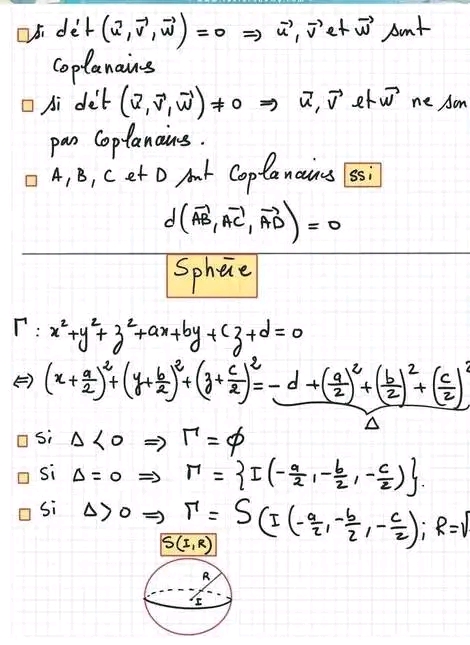 si dét (u⃗, v⃗, w⃗) = 0 ⇒ u⃗, v⃗ et w⃗ sont
Coplanaires
si dét (u⃗, v⃗, w⃗) ≠ 0 ⇒ u⃗, v⃗ et w⃗ ne son
pas Coplanaires.
A, B, C et D sont Coplanaires ssi
d(AB⃗, AC⃗, AD⃗) = 0
Sphère
Γ : x² + y² + z² + ax + by + cz + d = 0
⇔ (x + a/2)² + (y + b/2)² + (z + c/2)² = - d + (a/2)² + (b/2)² + (c/2)²
Δ
si Δ < 0 ⇒ Γ = ϕ
si Δ = 0 ⇒ Γ = {I(-a/2, -b/2, -c/2)}.
si Δ > 0 ⇒ Γ = S(I(-a/2, -b/2, -c/2); R = √
S(I, R)
R
I